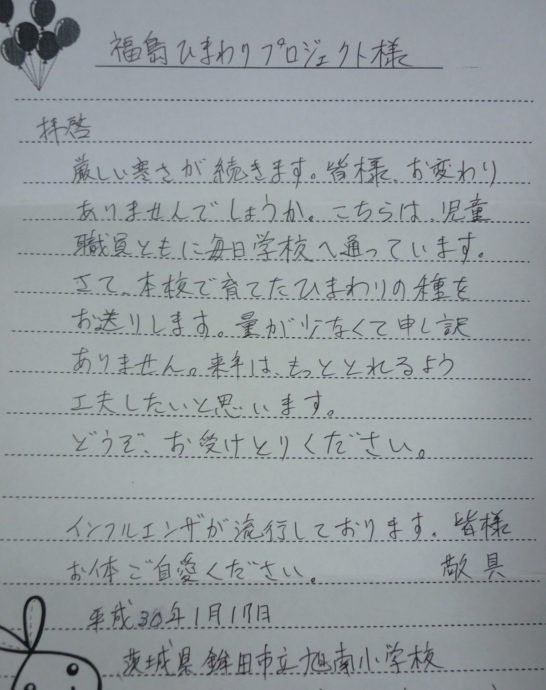 福島ひまわりプロジェクト様
拝啓
厳しい寒さが続きます。皆様、お変わり
ありませんでしょうか。こちらは、児童
職員ともに毎日学校へ通っています。
さて、本校で育てたひまわりの種を
お送りします。量が少なくて申し訳
ありません。来年は、もっととれるよう
工夫したいと思います。
どうぞ、お受けとりください。
インフルエンザが流行しております。皆様
お体ご自愛ください。 敬具
平成30年1月17日
茨城県鉾田市立旭南小学校